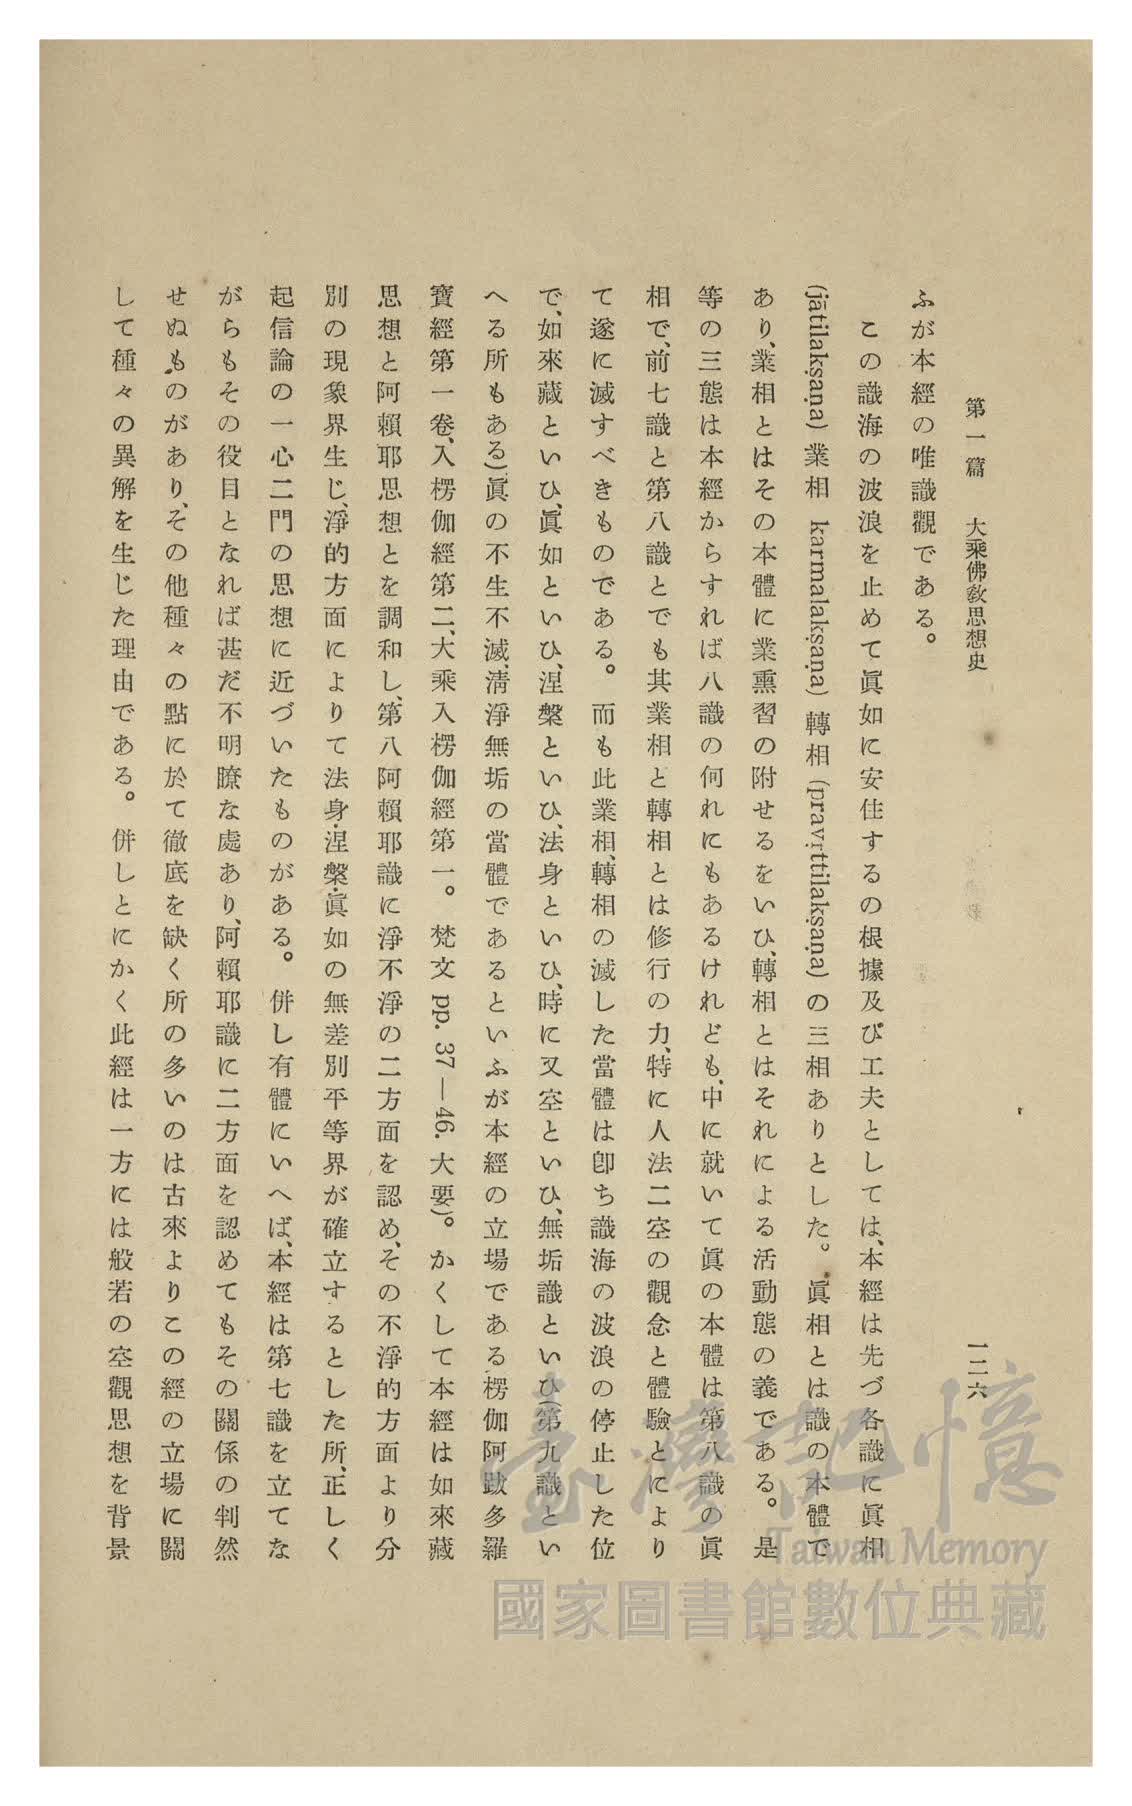 第一篇　大乘佛教思想史
一二六
ふが本經の唯識觀である。
この識海の波浪を止めて眞如に安住するの根據及び工夫としては、本經は先づ各識に眞相
(jātilakṣaṇa) 業相　karmalakṣaṇa) 轉相 (pravṛttilakṣaṇa) の三相ありとした。眞相とは識の本體で
あり、業相とはその本體に業熏習の附せるをいひ、轉相とはそれによる活動態の義である。是
等の三態は本經からすれば八識の何れにもあるけれども、中に就いて眞の本體は第八識の眞
相で、前七識と第八識とでも其業相と轉相とは修行の力、特に人法二空の觀念と體驗とにより
て遂に滅すべきものである。而も此業相、轉相の滅した當體は卽ち識海の波浪の停止した位
で、如來藏といひ、眞如といひ、涅槃といひ、法身といひ、時に又空といひ、無垢識といひ(第九識とい
へる所もある)眞の不生不滅、淸淨無垢の當體であるといふが本經の立場である楞伽阿跋多羅
寶經第一卷、入楞伽經第二、大乘入楞伽經第一。梵文 pp. 37—46. 大要)。かくして本經は如來藏
思想と阿賴耶思想とを調和し、第八阿賴耶識に淨不淨の二方面を認め、その不淨的方面より分
別の現象界生じ、淨的方面によりて法身・涅槃・眞如の無差別平等界が確立するとした所、正しく
起信論の一心二門の思想に近づいたものがある。併し有體にいへば、本經は第七識を立てな
がらもその役目となれば甚だ不明瞭な處あり、阿賴耶識に二方面を認めてもその關係の判然
せぬものがあり、その他種々の點に於て徹底を缺く所の多いのは古來よりこの經の立場に關
して種々の異解を生じた理由である。併しとにかく此經は一方には般若の空觀思想を背景
臺灣記憶
Taiwan Memory
國家圖書館數位典藏